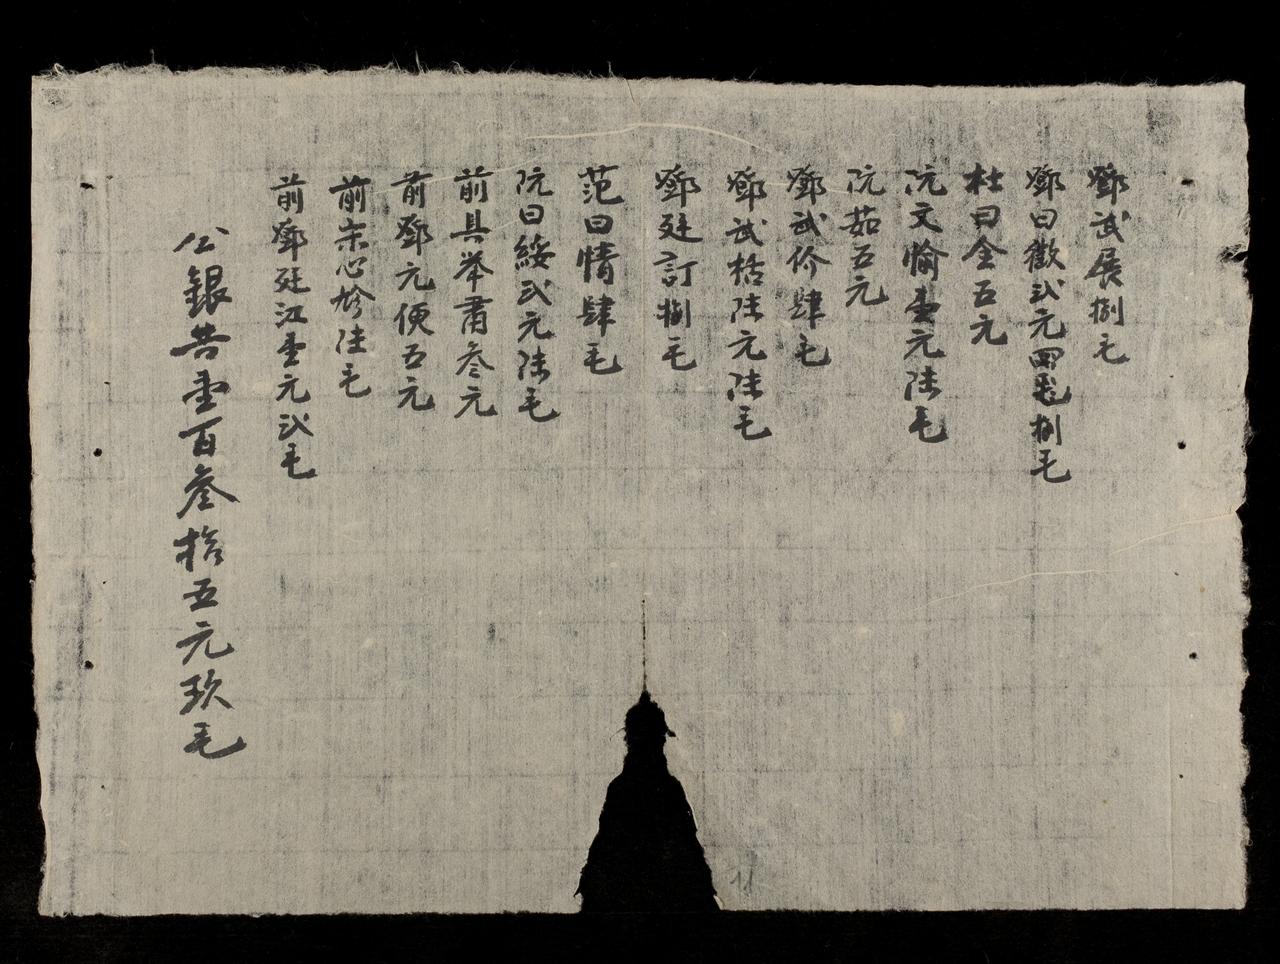 鄧武展捌毛
鄧曰歡弍元捌毛
杜曰全五元
阮文愉壹元陸毛
阮茹五元
鄧武价肆毛
鄧武栝陸元陸毛
鄧廷訂捌毛
范曰情肆毛
阮曰綏弍元陸毛
前具举肅叄元
前鄧元便五元
前宗心 陸毛
前鄧廷江壹元弍毛
公銀共壹百叄拾五元玖毛